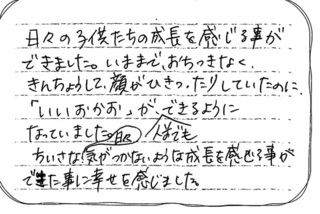 日々の子供たちの成長を感じる事が
できました。いままで、おちつきなく、
きんちょうして、顔がひきつったりしていたのに、
「いいおかお」が、できるように
なっていました。日々 人様でも
ちいさな気がつかないような成長を感じる事が
できた事に幸せを感じました。